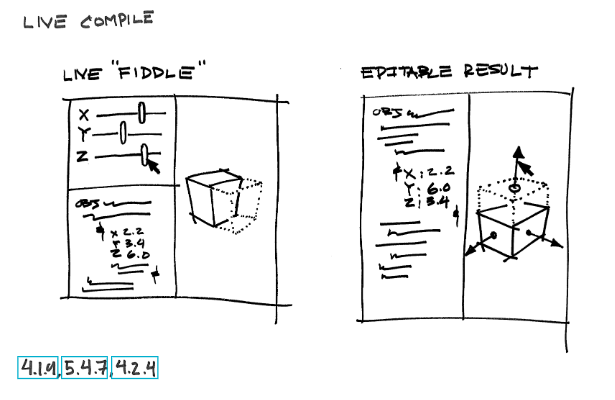 LIVE COMPILE
LIVE "FIDDLE"
X
Y
Z
OBJ
X 2.2
Y 3.4
Z 6.0
EDITABLE RESULT
OBJ
X: 2.2
Y: 6.0
Z: 3.4
4.1.9, 5.4.7, 4.2.4